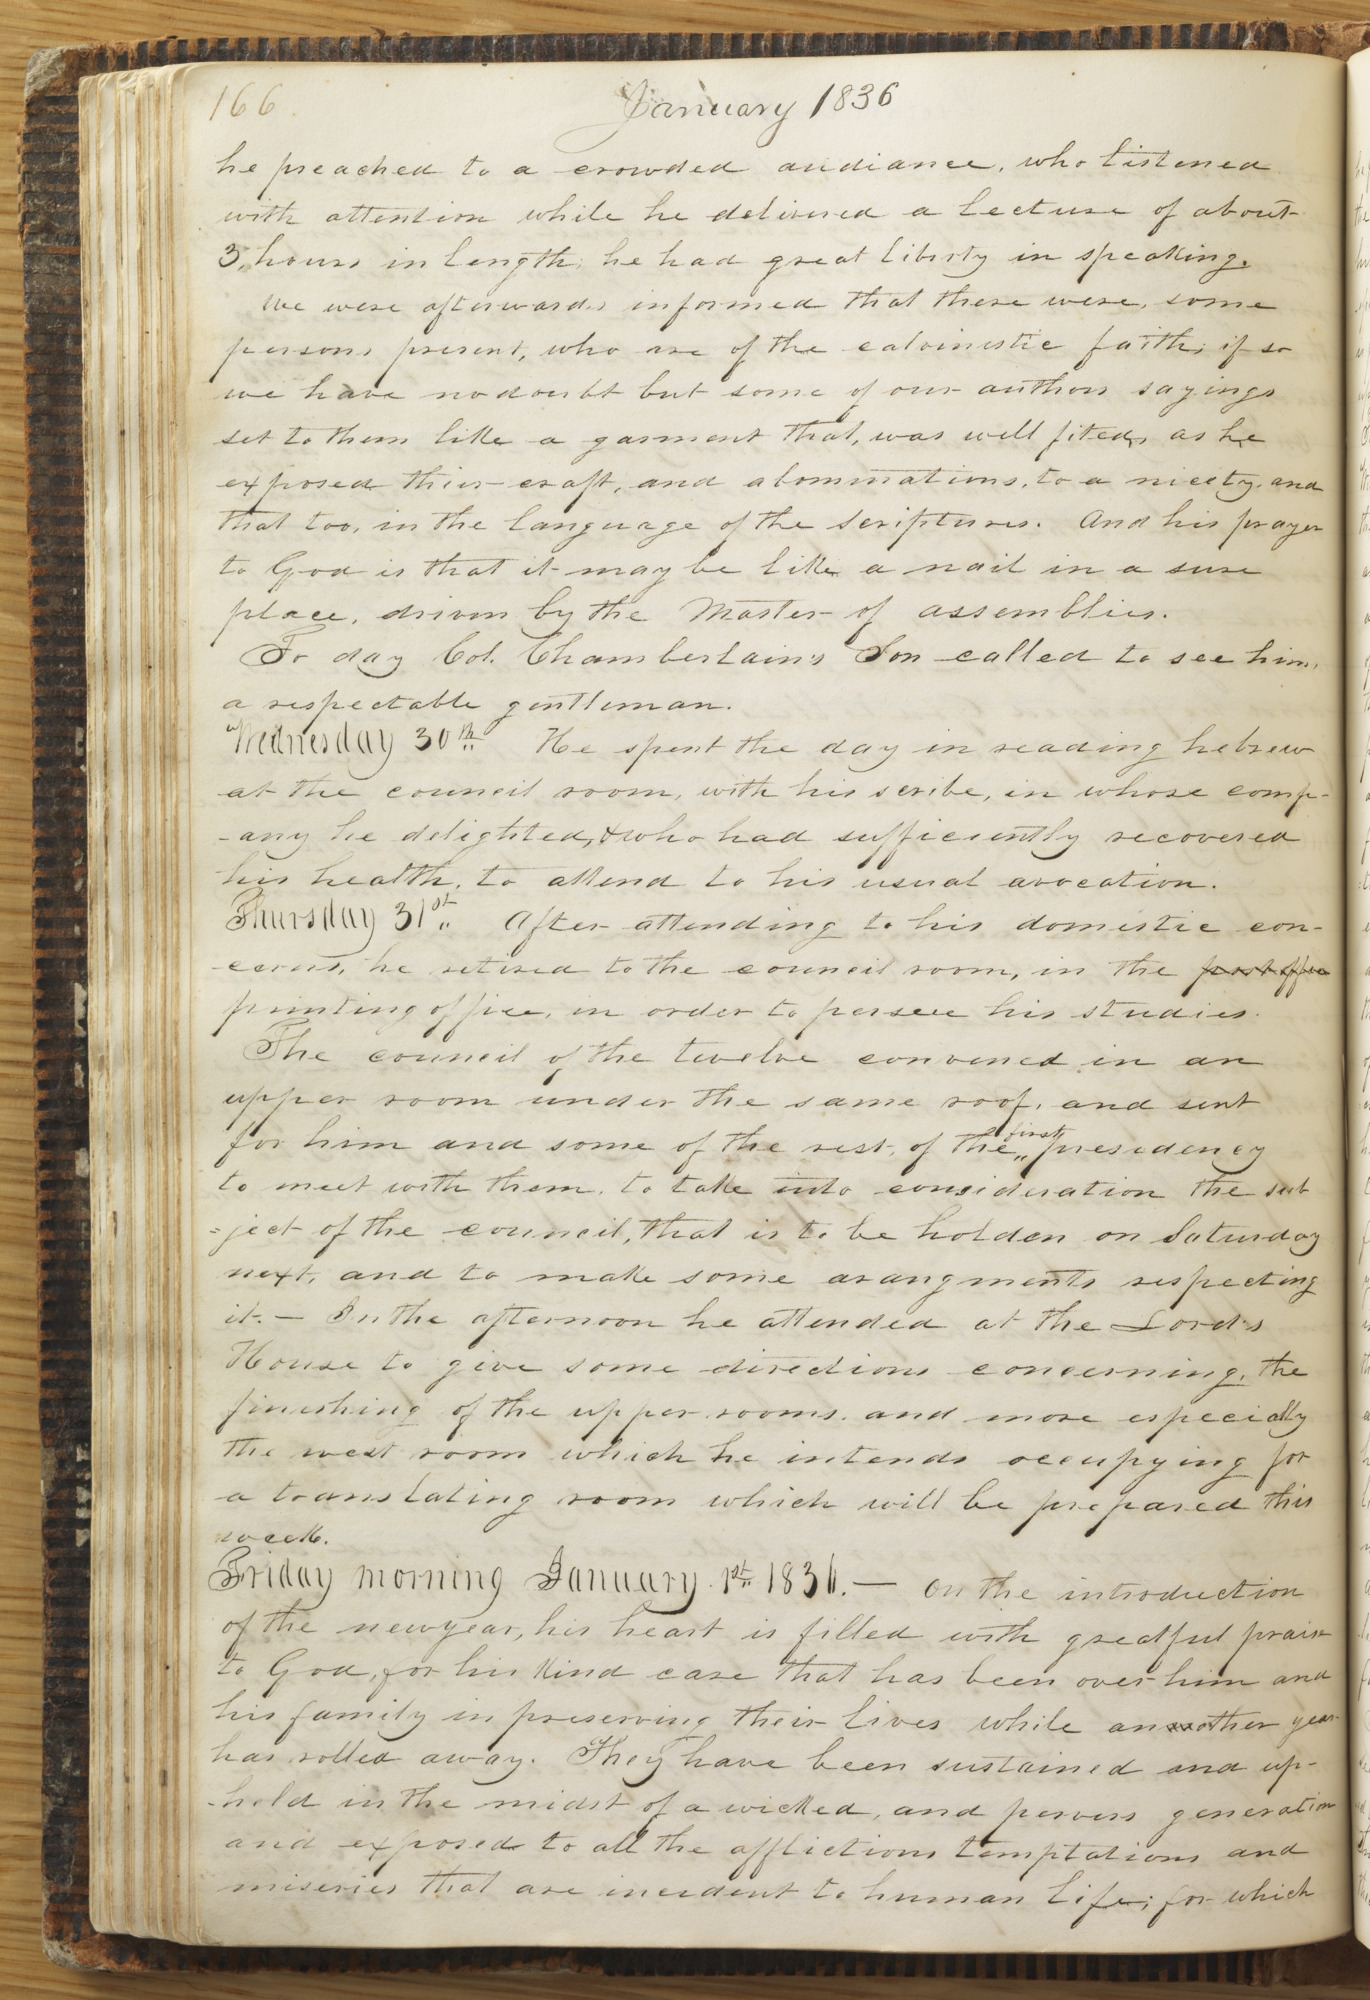 166
January 1836
he preached to a crowded audiance, who listened
with attention while he delivered a lecture of about
3, hours in length; he had great liberty in speaking.
We were afterwards informed that there were, some
persons present, who are of the calvinistic faith; if so
we have no doubt but some of our authors sayings
set to them like a garment that, was well fited, as he
exposed their craft, and abominations, to a nicety, and
that too, in the language of the scriptures. And his prayer
to God is that it may be like a nail in a sure
place, driven by the Master of assemblies.
To day Col. Chamberlain's Son called to see him,
a respectable gentleman.
Wednesday 30th. He spent the day in reading hebrew
at the council room, with his scribe, in whose comp-
-any he delighted, & who had sufficiently recovered
his health, to attend to his usual avocation.
Thursday 31st. After attending to his domestic con-
-cerns, he retired to the council room, in the post office
printing office, in order to persue his studies.
The council of the twelve convened in an
upper room under the same roof, and sent
for him and some of the rest, of the first presedency
to meet with them, to take into consideration the sub
=ject of the council, that is to be holden on Saturday
next, and to make some arangments respecting
it. — In the afternoon he attended at the Lord's
House to give some directions concerning, the
finishing of the upper rooms, and more especially
the west room which he intends occupying for
a translating room which will be prepared this
week.
Friday morning January 1st. 1836. — On the introduction
of the newyear, his heart is filled with greatful praise
to God, for his kind care that has been over him and
his family in preserving their lives while another year
has rolled away. They have been sustained and up-
-held in the midst of a wicked, and pervers generation
and exposed to all the afflictions temptations and
miseries that are incident to human life; for which